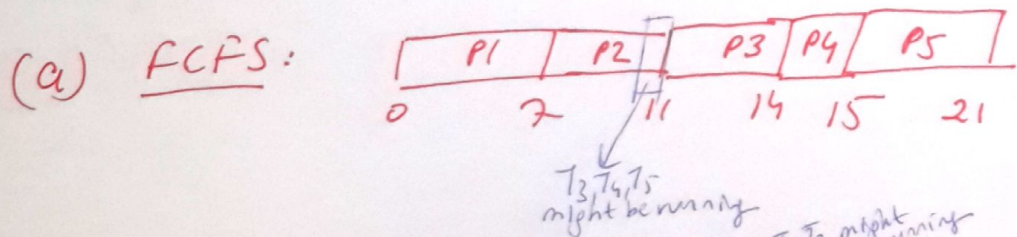 (a) FCFS: P1 P2 P3 P4 P5
0 7 11 14 15 21
T3, T4, T5
might be running
might
running